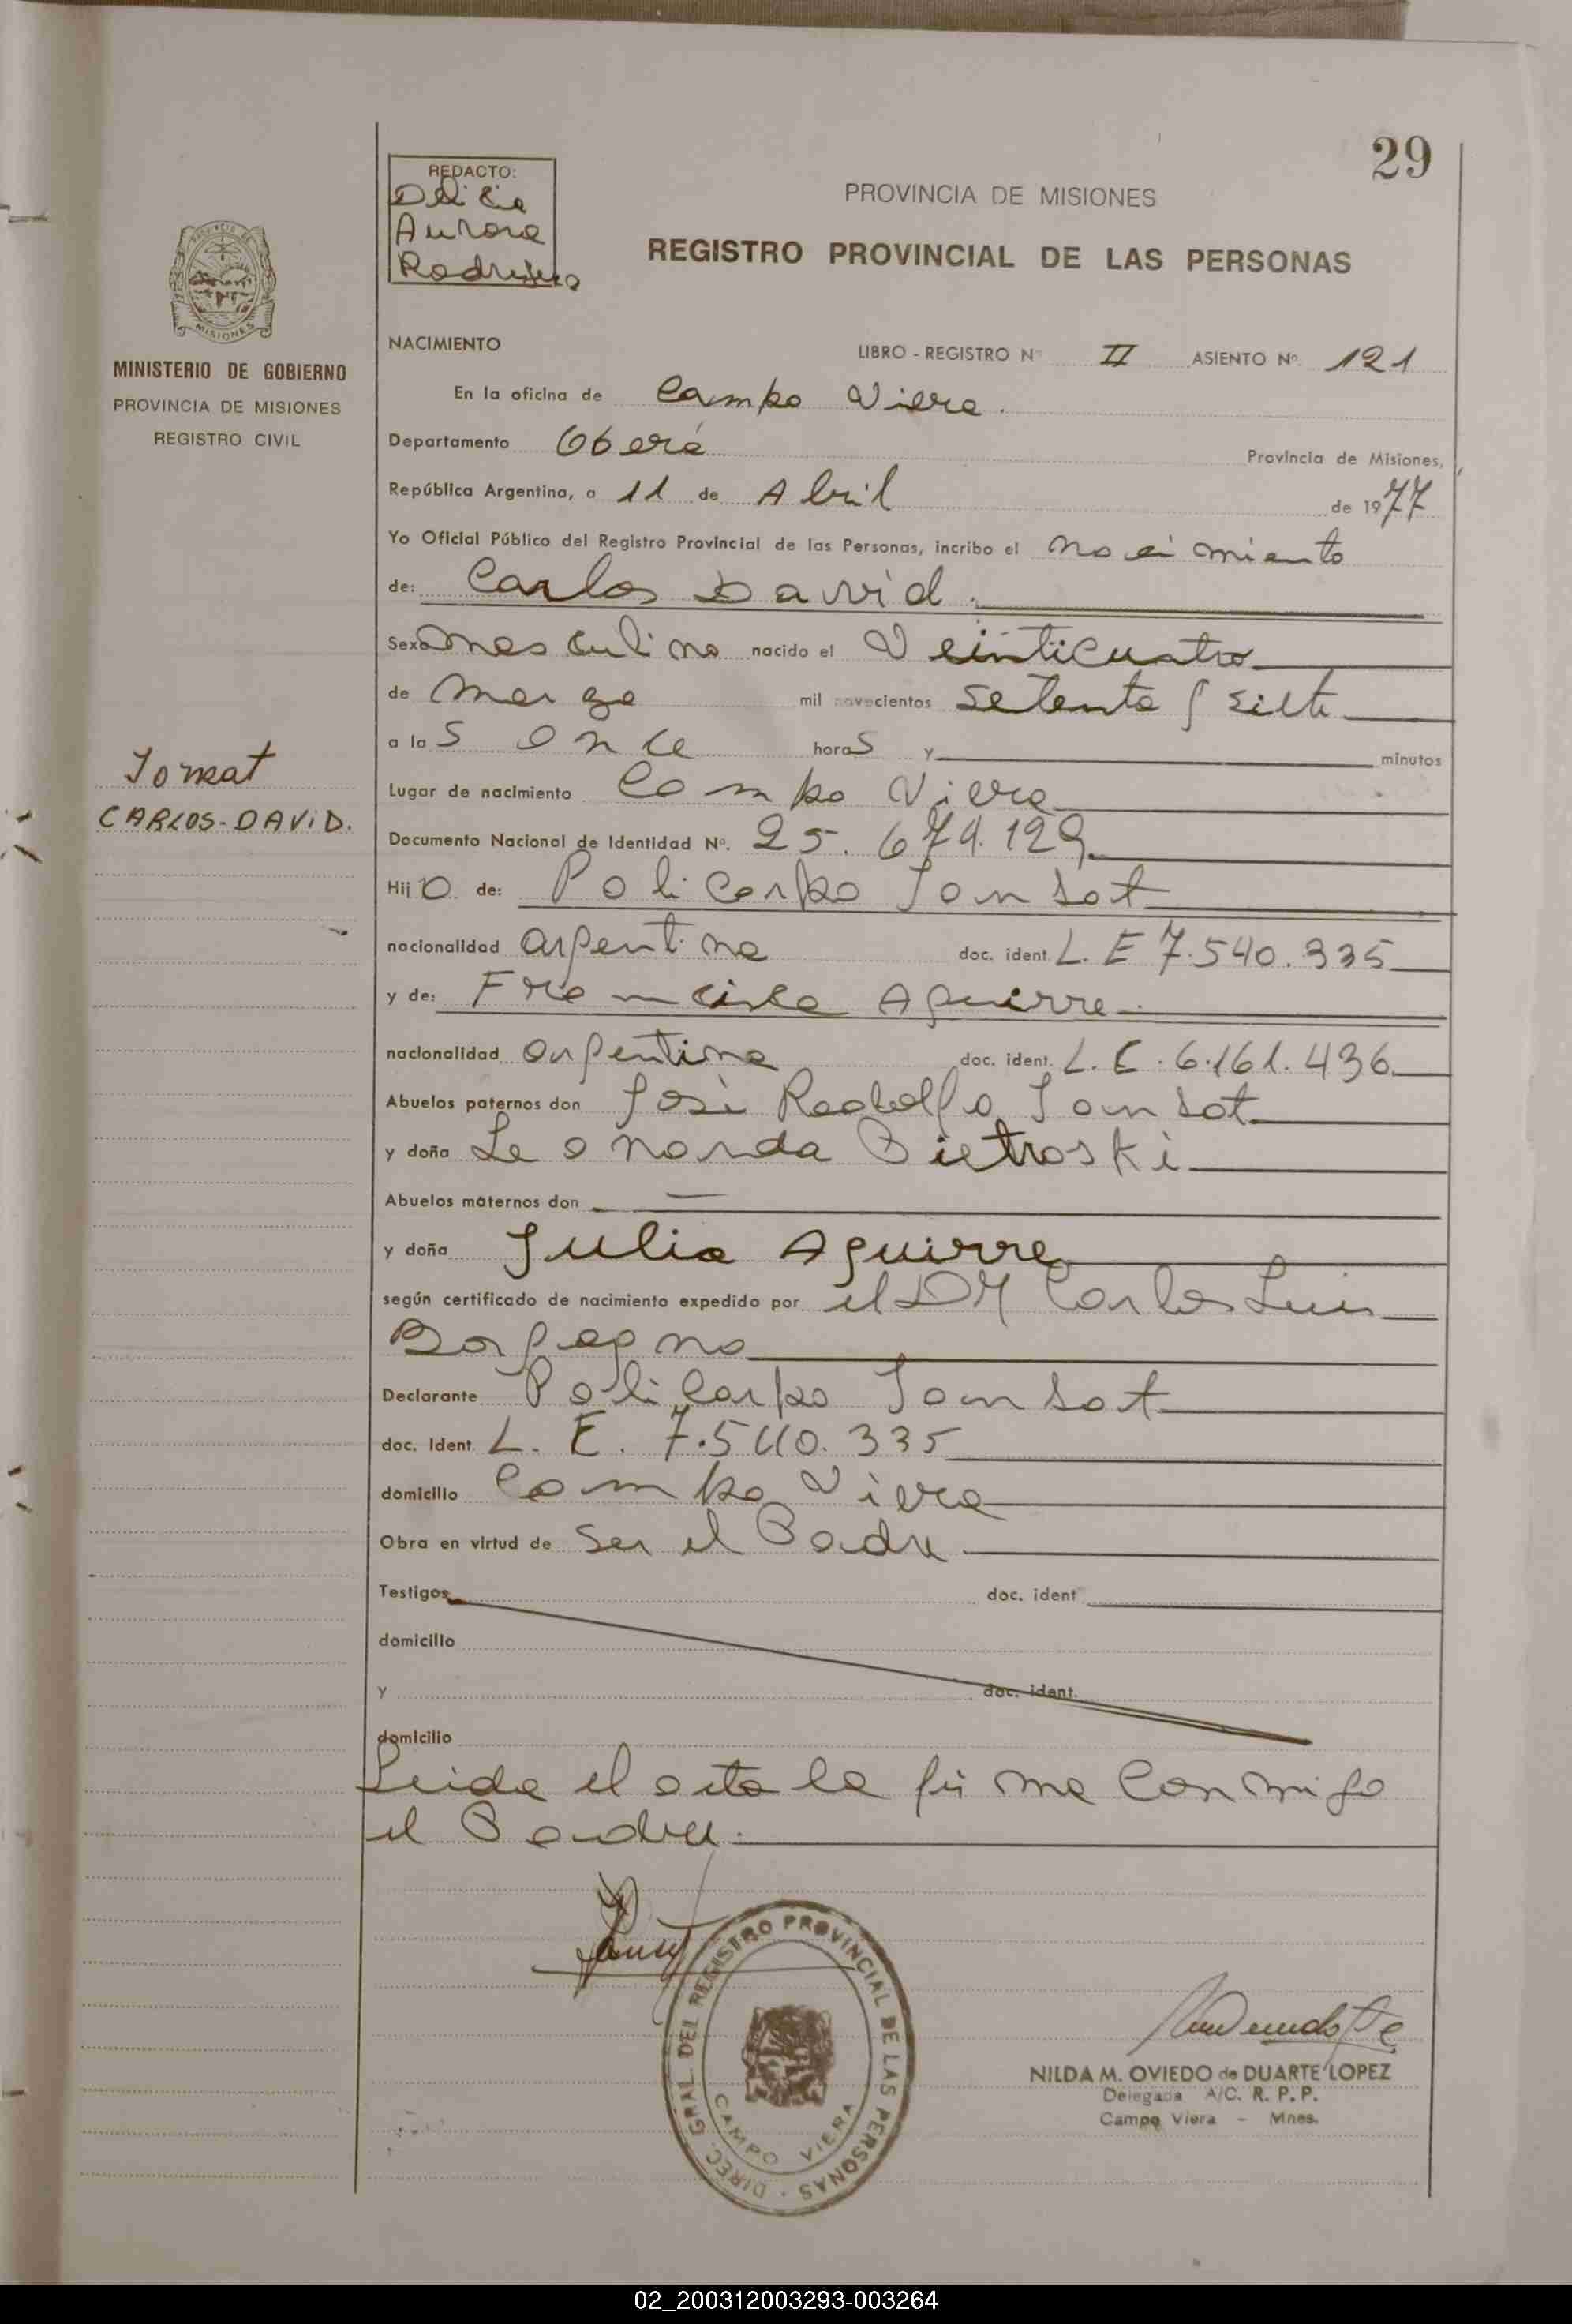 29
REDACTO:
Delicia
Aurora
Rodriguez
PROVINCIA DE MISIONES
REGISTRO PROVINCIAL DE LAS PERSONAS
PROVINCIA DE
MISIONES
MINISTERIO DE GOBIERNO
PROVINCIA DE MISIONES
REGISTRO CIVIL
NACIMIENTO
LIBRO - REGISTRO Nº II ASIENTO Nº 121
En la oficina de Campo Viera.
Departamento Oberá Provincia de Misiones,
República Argentina, a 11 de Abril de 1977
Yo Oficial Público del Registro Provincial de las Personas, incribo el nacimiento
de: Carlos David.
Sexo masculino nacido el Veinticuatro
de marzo mil novecientos setenta y siete
a las once horas y minutos
CARLOS-DAVID.
Lugar de nacimiento Campo Viera
Documento Nacional de Identidad Nº. 25.679.129
Hijo de: Policarpo
nacionalidad argentina doc. ident. L. E 7.540.335
y de: Francisca Aguirre
nacionalidad argentina doc. ident. L. C. 6.161.436
Abuelos paternos don José Rodolfo
y doña Leonarda Pietroski
Abuelos maternos don —
y doña Julia Aguirre
según certificado de nacimiento expedido por el DR Carlos Luis
Declarante Policarpo
doc. Ident. L. E. 7.540.335
domicilio Campo Viera
Obra en virtud de ser el Padre
Testigos doc. ident
domicilio
y doc. ident.
domicilio
Leida el acta la firma conmigo
el Padre.
DIREC. GRAL. DEL REGISTRO PROVINCIAL DE LAS PERSONAS
CAMPO VIERA
NILDA M. OVIEDO de DUARTE LOPEZ
Delegada A/C. R. P. P.
Campo Viera - Mnes.
02_200312003293-003264